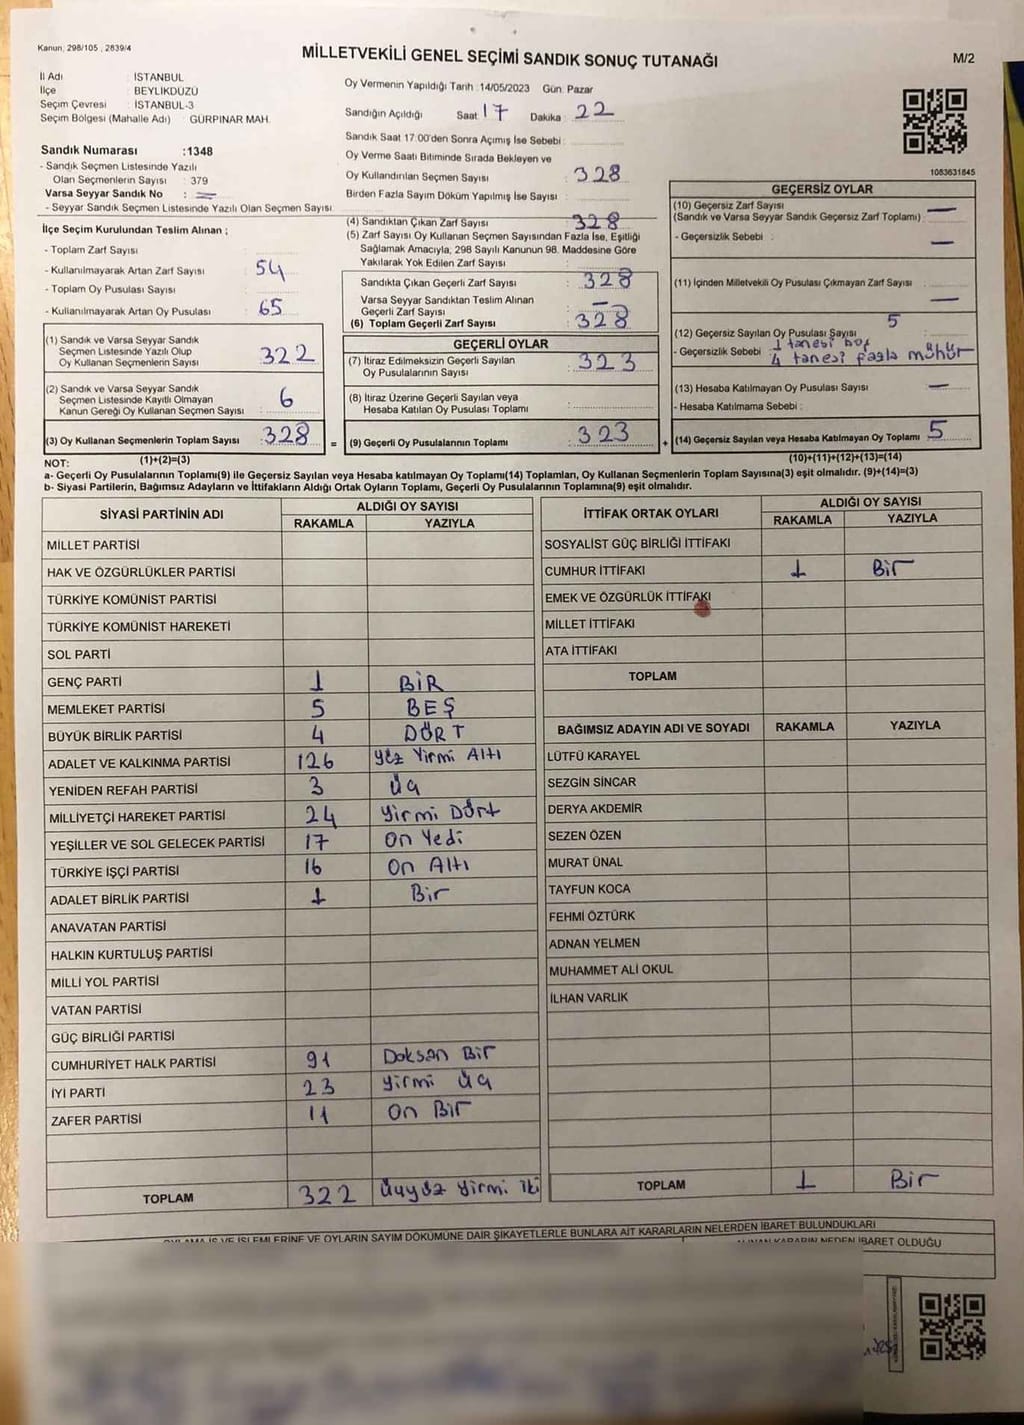 Kanun: 298/105 , 2839/4
MİLLETVEKİLİ GENEL SEÇİMİ SANDIK SONUÇ TUTANAĞI
M/2
İl Adı : İSTANBUL
İlçe : BEYLİKDÜZÜ
Seçim Çevresi : İSTANBUL-3
Seçim Bölgesi (Mahalle Adı) : GÜRPINAR MAH.
Sandık Numarası :1348
- Sandık Seçmen Listesinde Yazılı
Olan Seçmenlerin Sayısı : 379
Varsa Seyyar Sandık No :
- Seyyar Sandık Seçmen Listesinde Yazılı Olan Seçmen Sayısı :
İlçe Seçim Kurulundan Teslim Alınan ;
- Toplam Zarf Sayısı
- Kullanılmayarak Artan Zarf Sayısı : 54
- Toplam Oy Pusulası Sayısı
- Kullanılmayarak Artan Oy Pusulası : 65
(1) Sandık ve Varsa Seyyar Sandık
Seçmen Listesinde Yazılı Olup
Oy Kullanan Seçmenlerin Sayısı : 322
(2) Sandık ve Varsa Seyyar Sandık
Seçmen Listesinde Kayıtlı Olmayan
Kanun Gereği Oy Kullanan Seçmen Sayısı : 6
(3) Oy Kullanan Seçmenlerin Toplam Sayısı : 328
Oy Vermenin Yapıldığı Tarih :14/05/2023 Gün: Pazar
Sandığın Açıldığı Saat: 17 Dakika: 22
Sandık Saat 17:00'den Sonra Açılmış İse Sebebi :
Oy Verme Saati Bitiminde Sırada Bekleyen ve
Oy Kullandırılan Seçmen Sayısı : 328
Birden Fazla Sayım Döküm Yapılmış İse Sayısı :
(4) Sandıktan Çıkan Zarf Sayısı : 328
(5) Zarf Sayısı Oy Kullanan Seçmen Sayısından Fazla İse, Eşitliği
Sağlamak Amacıyla, 298 Sayılı Kanunun 98. Maddesine Göre
Yakılarak Yok Edilen Zarf Sayısı :
Sandıkta Çıkan Geçerli Zarf Sayısı : 328
Varsa Seyyar Sandıktan Teslim Alınan
Geçerli Zarf Sayısı : –
(6) Toplam Geçerli Zarf Sayısı : 328
GEÇERLİ OYLAR
(7) İtiraz Edilmeksizin Geçerli Sayılan
Oy Pusulalarının Sayısı : 323
(8) İtiraz Üzerine Geçerli Sayılan veya
Hesaba Katılan Oy Pusulası Toplamı :
= (9) Geçerli Oy Pusulalarının Toplamı : 323
1083631845
GEÇERSİZ OYLAR
(10) Geçersiz Zarf Sayısı —
(Sandık ve Varsa Seyyar Sandık Geçersiz Zarf Toplamı) :
- Geçersizlik Sebebi : —
(11) İçinden Milletvekili Oy Pusulası Çıkmayan Zarf Sayısı : —
(12) Geçersiz Sayılan Oy Pusulası Sayısı : 5
- Geçersizlik Sebebi : 1 tanesi boş
4 tanesi fazla mühür
(13) Hesaba Katılmayan Oy Pusulası Sayısı : —
- Hesaba Katılmama Sebebi :
+ (14) Geçersiz Sayılan veya Hesaba Katılmayan Oy Toplamı : 5
NOT: (1)+(2)=(3)
(10)+(11)+(12)+(13)=(14)
a- Geçerli Oy Pusulalarının Toplamı(9) ile Geçersiz Sayılan veya Hesaba katılmayan Oy Toplamı(14) Toplamları, Oy Kullanan Seçmenlerin Toplam Sayısına(3) eşit olmalıdır. (9)+(14)=(3)
b- Siyasi Partilerin, Bağımsız Adayların ve İttifakların Aldığı Ortak Oyların Toplamı, Geçerli Oy Pusulalarının Toplamına(9) eşit olmalıdır.
SİYASİ PARTİNİN ADI
ALDIĞI OY SAYISI
RAKAMLA YAZIYLA
MİLLET PARTİSİ
HAK VE ÖZGÜRLÜKLER PARTİSİ
TÜRKİYE KOMÜNİST PARTİSİ
TÜRKİYE KOMÜNİST HAREKETİ
SOL PARTİ
GENÇ PARTİ 1 BİR
MEMLEKET PARTİSİ 5 BEŞ
BÜYÜK BİRLİK PARTİSİ 4 DÖRT
ADALET VE KALKINMA PARTİSİ 126 Yüz Yirmi Altı
YENİDEN REFAH PARTİSİ 3 Üç
MİLLİYETÇİ HAREKET PARTİSİ 24 Yirmi Dört
YEŞİLLER VE SOL GELECEK PARTİSİ 17 On Yedi
TÜRKİYE İŞÇİ PARTİSİ 16 On Altı
ADALET BİRLİK PARTİSİ 1 Bir
ANAVATAN PARTİSİ
HALKIN KURTULUŞ PARTİSİ
MİLLİ YOL PARTİSİ
VATAN PARTİSİ
GÜÇ BİRLİĞİ PARTİSİ
CUMHURİYET HALK PARTİSİ 91 Doksan Bir
İYİ PARTİ 23 Yirmi Üç
ZAFER PARTİSİ 11 On Bir
TOPLAM 322 Üçyüz Yirmi iki
İTTİFAK ORTAK OYLARI
ALDIĞI OY SAYISI
RAKAMLA YAZIYLA
SOSYALİST GÜÇ BİRLİĞİ İTTİFAKI
CUMHUR İTTİFAKI 1 Bir
EMEK VE ÖZGÜRLÜK İTTİFAKI
MİLLET İTTİFAKI
ATA İTTİFAKI
TOPLAM
BAĞIMSIZ ADAYIN ADI VE SOYADI RAKAMLA YAZIYLA
LÜTFÜ KARAYEL
SEZGİN SİNCAR
DERYA AKDEMİR
SEZEN ÖZEN
MURAT ÜNAL
TAYFUN KOCA
FEHMİ ÖZTÜRK
ADNAN YELMEN
MUHAMMET ALİ OKUL
İLHAN VARLIK
TOPLAM 1 Bir
OYLAMA İŞ VE İŞLEMLERİNE VE OYLARIN SAYIM DÖKÜMÜNE DAİR ŞİKAYETLERLE BUNLARA AİT KARARLARIN NELERDEN İBARET BULUNDUKLARI
ALINAN KARARIN NEDEN İBARET OLDUĞU